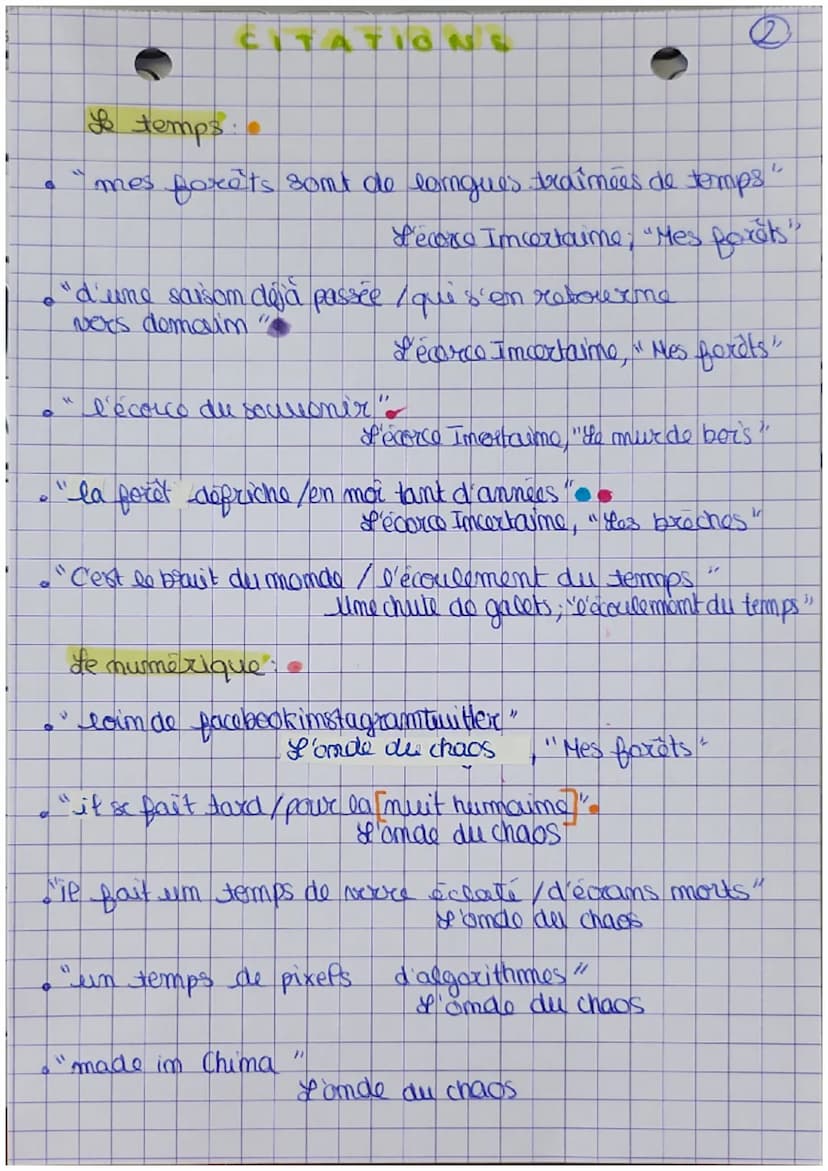 CITATIONS
2
Le temps :
"mes forêts sont de longues traînées de temps"
L'écorce Incertaine, "Mes forêts"
"d'une saison déjà passée / qui s'en retourne
vers demain"
L'écorce Incertaine, "Mes forêts"
"l'écorce du souvenir"
L'écorce Incertaine, "Le mur de bois"
"la forêt défriche / en moi tant d'années"
L'écorce Incertaine, "Les brèches"
"C'est le bruit du monde / l'écoulement du temps"
Une chute de galets, "l'écoulement du temps"
Le numérique :
"loin de facebookinstagramtwitter"
L'onde du chaos, "Mes forêts"
"il se fait tard / pour la [nuit humaine]"
L'onde du chaos
"il fait un temps de verre éclaté / d'écrans morts"
L'onde du chaos
"un temps de pixels d'algorithmes"
L'onde du chaos
"made in China"
L'onde du chaos